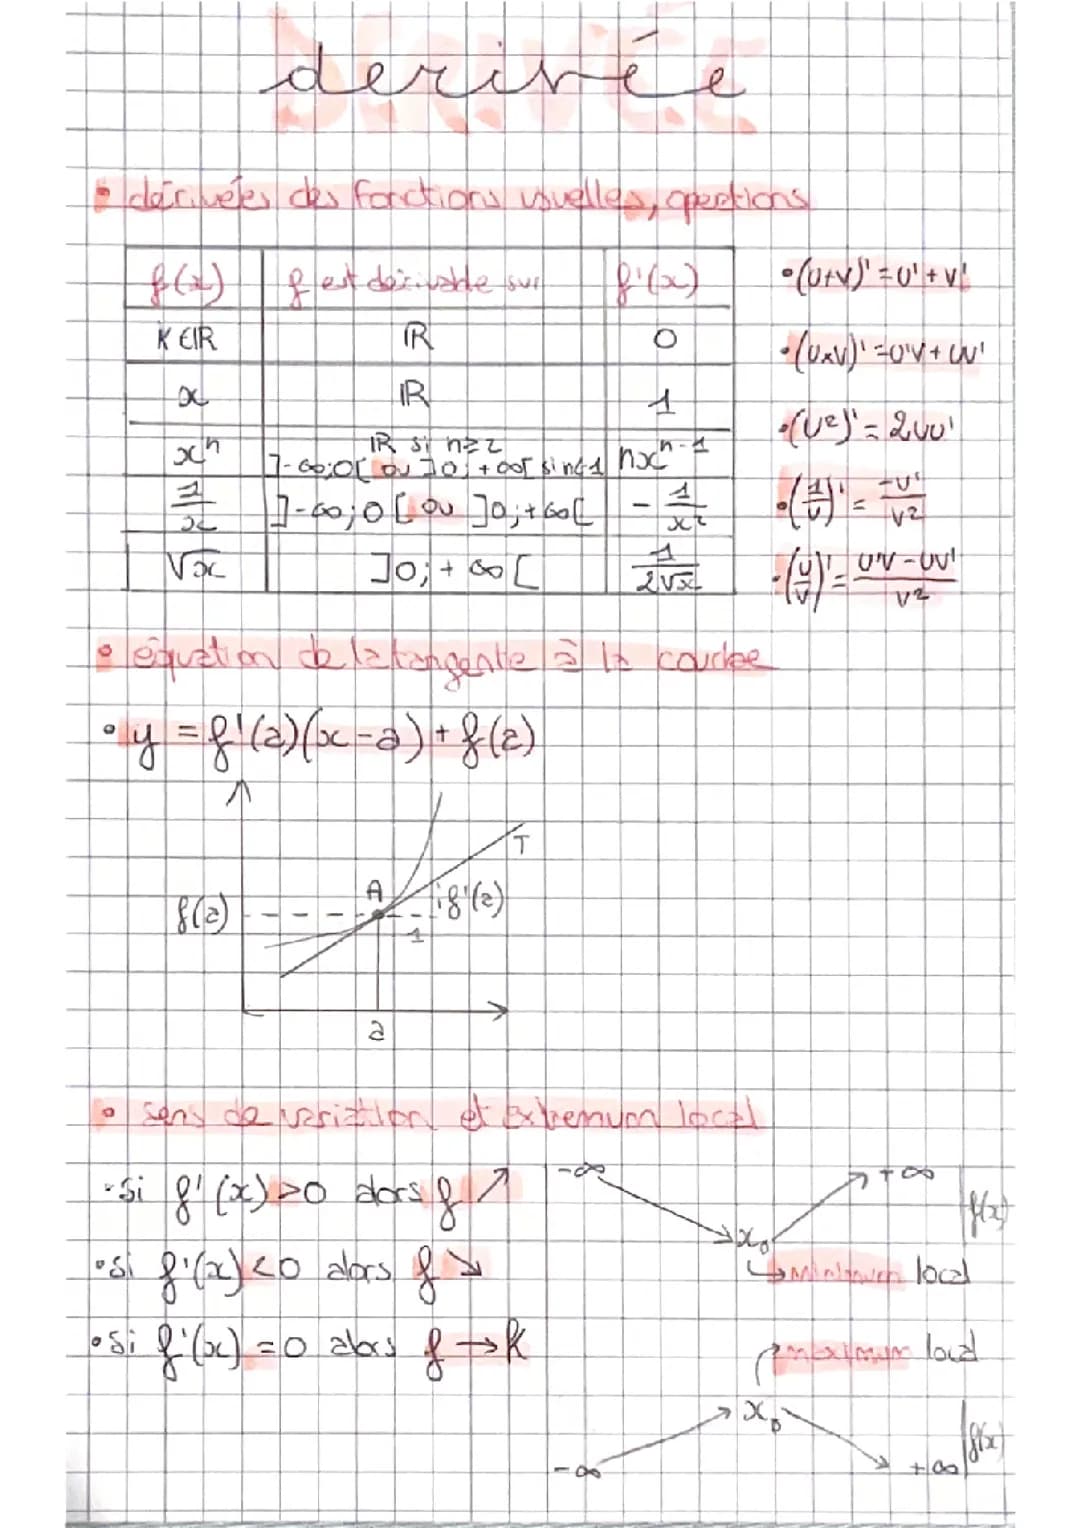 dérivée
• dérivées des fonctions usuelles, opertions
f(x) | f est dérivable sur | f'(x)
K ∈ ℝ | ℝ | 0
x | ℝ | 1
xⁿ | ℝ si n≥2 ]-∞;0[ ou ]0;+∞[ si n≤-1 | nxⁿ⁻¹
1/x | ]-∞;0[ ou ]0;+∞[ | -1/x²
√x | ]0;+∞[ | 1/2√x
• (U+V)' = U' + V'
• (U×V)' = U'V + UV'
• (U²)' = 2UU'
• (1/V)' = -V'/V²
• (U/V)' = U'V - UV'/V²
• équation de la tangente à la courbe
• y = f'(a)(x-a) + f(a)
T
A
f(a)
f'(a)
1
a
• sens de variation et extremum local
• Si f'(x) >0 alors f ↗
• Si f'(x) <0 alors f ↘
• Si f'(x) = 0 alors f → k
-∞ +∞
x₀ f(x)
↳ minimum local
maximum local
x₀
-∞ +∞ f(x)